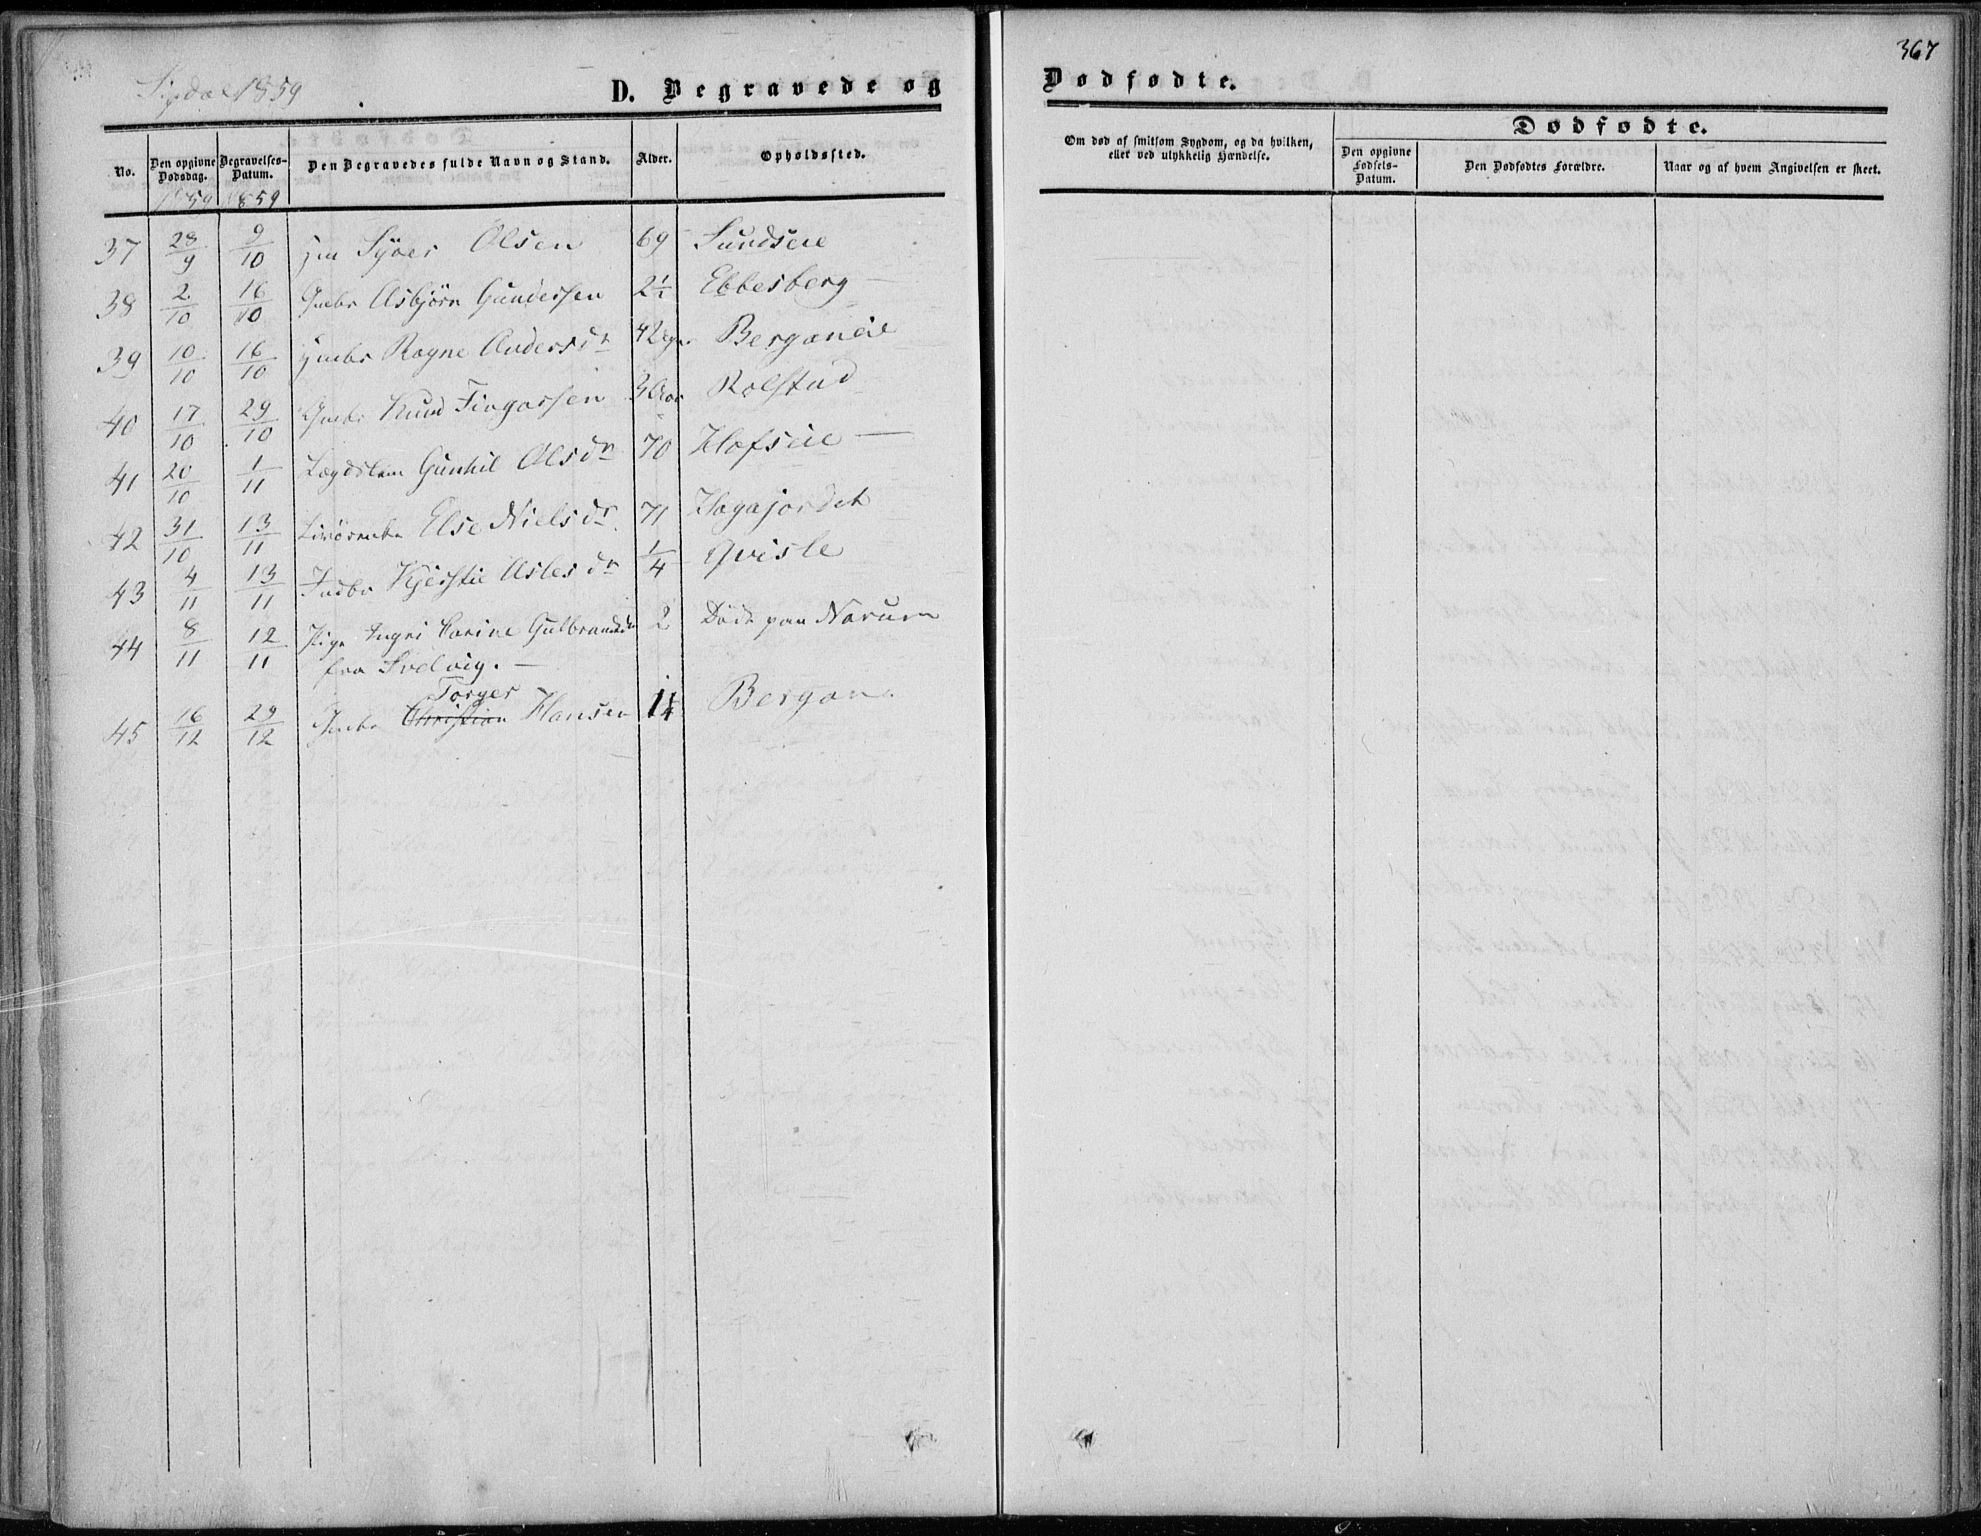 367
Sigdal 1859
D. Begravede og
Dødfødte.
No.
Den opgivne Dødsdag.
Begravelses-Datum.
Den Begravedes fulde Navn og Stand.
Alder.
Opholdssted.
Om død af smitsom Sygdom, og da hvilken,
eller ved ulykkelig Hændelse.
Dødfødte.
Den opgivne Fødsels-Datum.
Den Dødfødtes Forældre.
Naar og af hvem Angivelsen er skeet.
1859 1859
37 28/9 9/10 Olsen 69 Sundseie
38 2/10 16/10 Gmbr Asbjørn Gundersen 2 Ebbesberg —
39 10/10 16/10 Ragne Andersdr 42 Berganeie
40 17/10 29/10 Gmbr Knud 3 Rolstad
41 20/10 1/11 Lægdslem Gunhil Olsdr 70 Hofseie —
42 31/10 13/11 Else Nielsdr 71 Hagajordet
43 4/11 13/11 Kjerstie Aslesdr 1/4 Qvisle
44 8/11 12/11 Pige Ingri Carine Gulbrandsdr 2 Døde paa Narum
fra Svelvig. —
Torger
45 16/12 29/12 Gmbr Christian Hansen Bergan